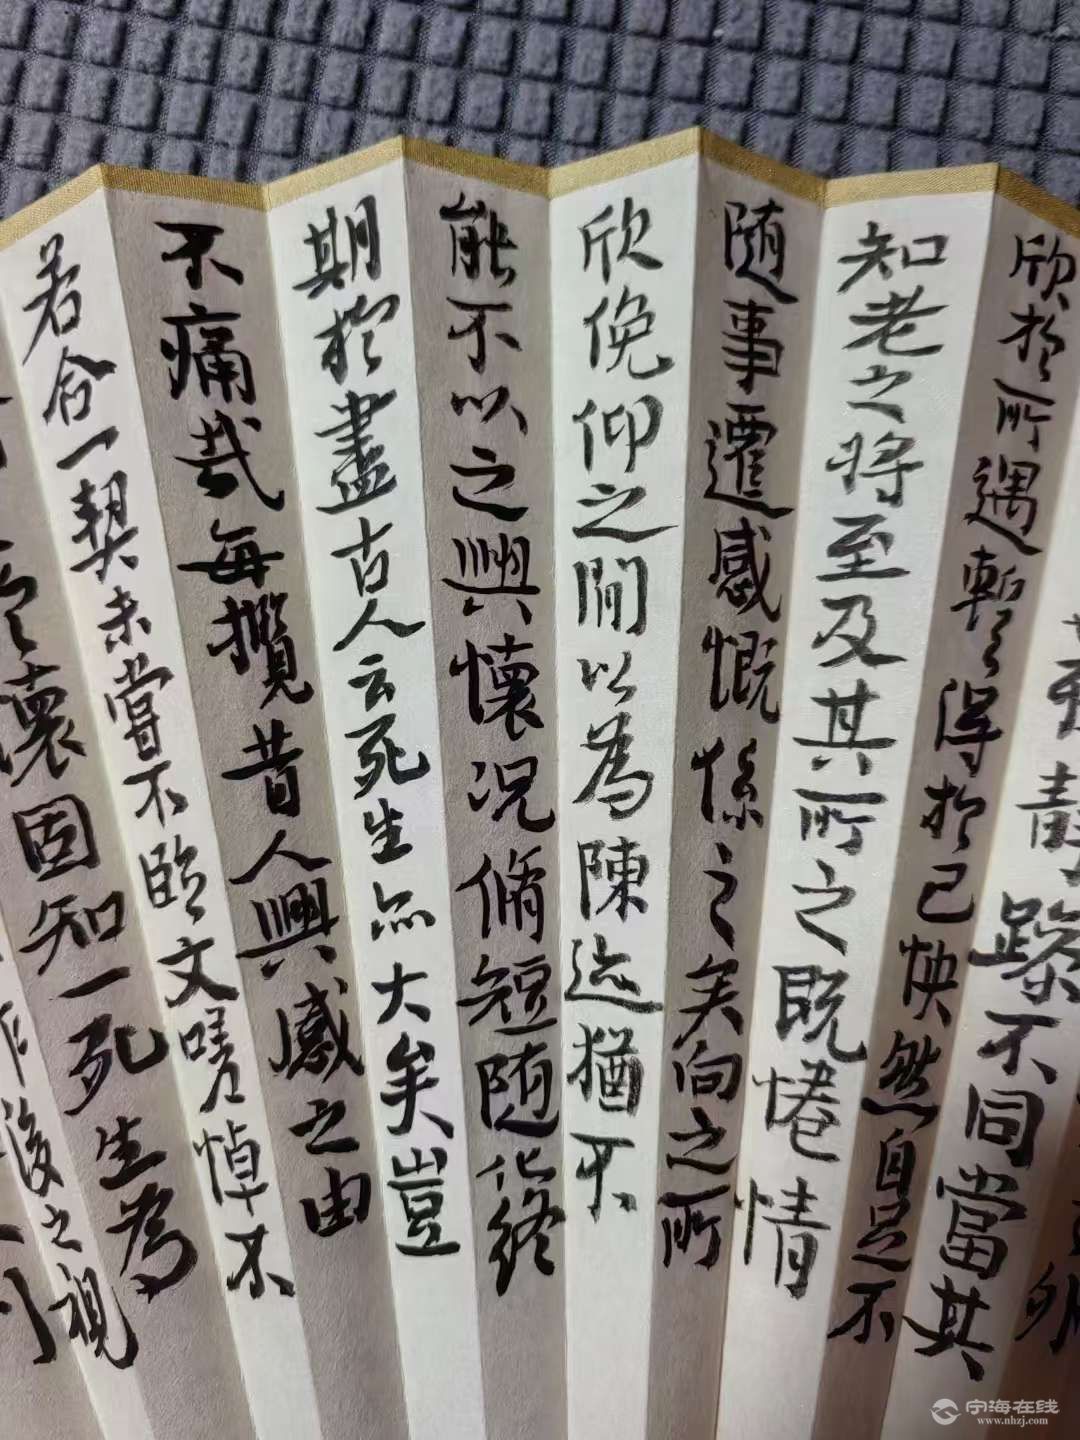 外
殊靜躁不同當其
欣於所遇暫得於己怏然自足不
知老之將至及其所之既惓情
随事遷感慨係之矣向之所
欣俛仰之閒以為陳迹猶不
能不以之興懷況脩短随化終
期於盡古人云死生亦大矣豈
不痛哉每攬昔人興感之由
若合一契未嘗不臨文嗟悼不
懷固知一死生為
後之視
宁海在线
www.nhzj.com